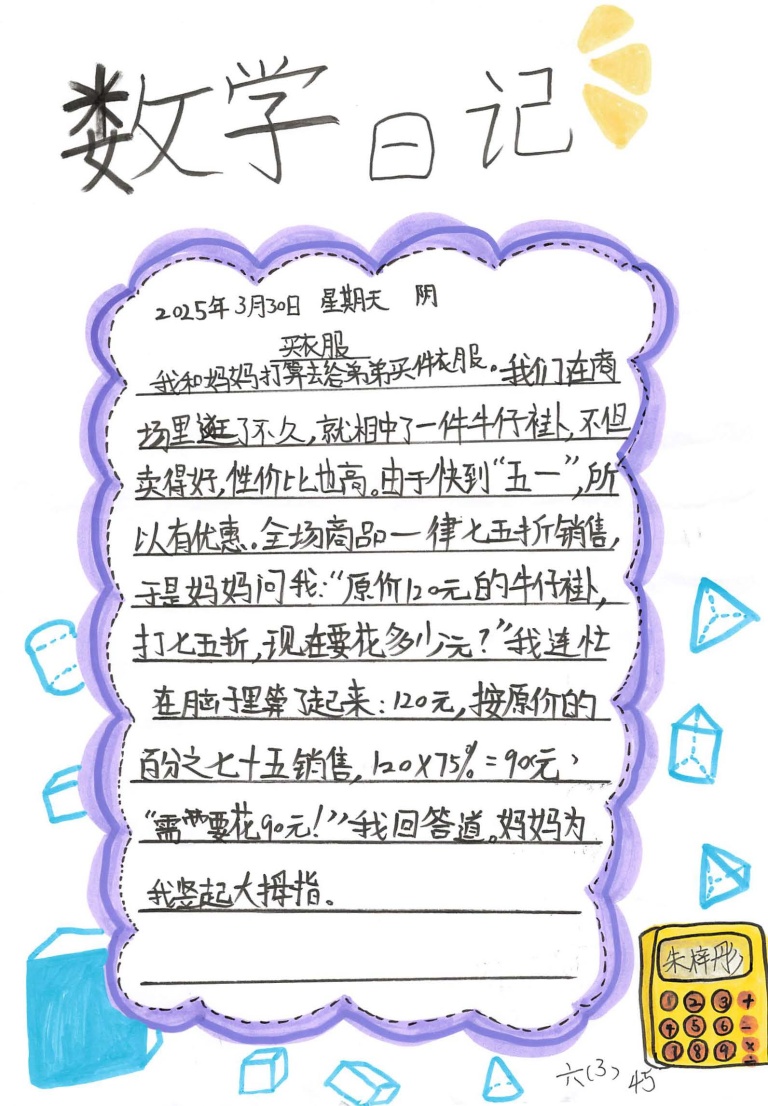 数学日记
2025年3月30日 星期天 阴
买衣服
我和妈妈打算去给弟弟买件衣服。我们在商
场里逛了不久,就相中了一件牛仔褂,不但
卖得好,性价比也高。由于快到“五一”,所
以有优惠。全场商品一律七五折销售,
于是妈妈问我:“原价120元的牛仔褂,
打七五折,现在要花多少元?”我连忙
在脑子里算了起来:120元,按原价的
百分之七十五销售,120×75%=90(元)
“需要花90元!”我回答道。妈妈为
我竖起大拇指。
朱梓彤
1 2 3 +
4 5 6 -
7 8 9 ×
÷
六(3) 45